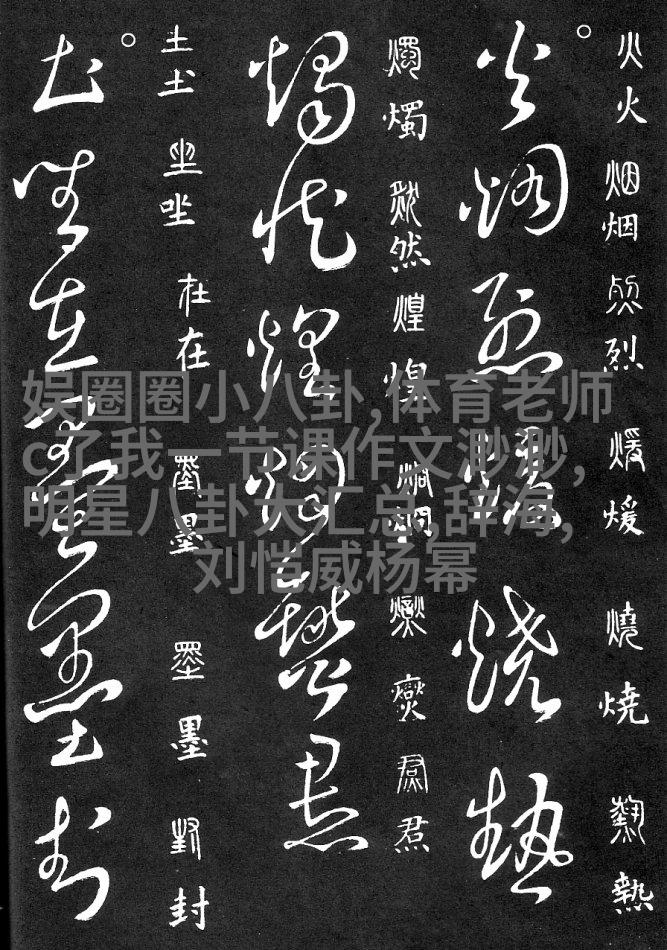 火火 烟烟 烈烈 煖煖 燒燒 熱熱
火烟烈煖燒熱
燭燭 然然 煌煌 燮 焄焄
燭然煌
土土 坐坐 杜在 墨墨 封封
土坐在墨封
娱圈圈小八卦,体育老师
c了我一节课作文渺渺,
明星八卦大汇总,辞海,
刘恺威杨幂